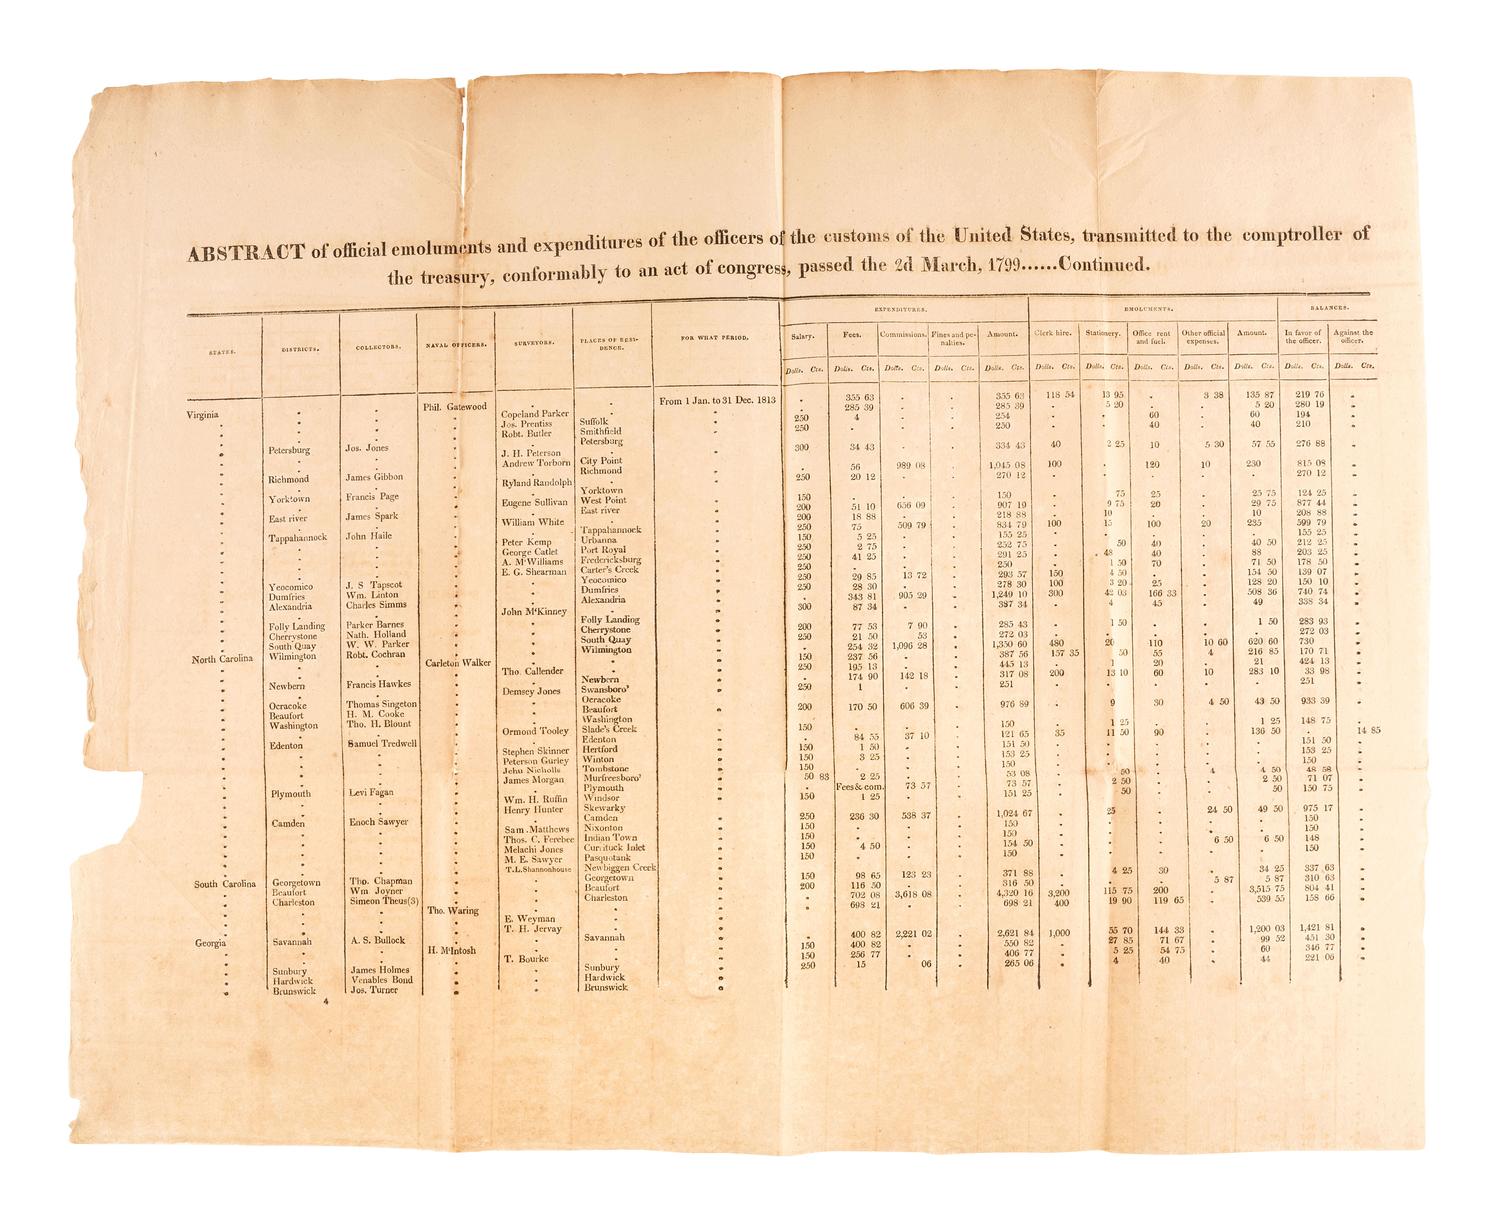 ABSTRACT of official emoluments and expenditures of the officers of the customs of the United States, transmitted to the comptroller of
the treasury, conformably to an act of congress, passed the 2d March, 1799......Continued.
STATES. DISTRICTS. COLLECTORS. NAVAL OFFICERS. SURVEYORS. PLACES OF RESIDENCE. FOR WHAT PERIOD.
Virginia Phil. Gatewood From 1 Jan. to 31 Dec. 1813
Copeland Parker
Jos. Prentiss Suffolk
Robt. Butler Smithfield
Petersburg Jos. Jones Petersburg
J. H. Peterson
Andrew Torborn City Point
Richmond James Gibbon Richmond
Ryland Randolph
Yorktown Francis Page Yorktown
Eugene Sullivan West Point
East river James Spark East river
William White
Tappahannock John Haile Tappahannock
Peter Kemp Urbanna
George Catlet Port Royal
A. M'Williams Fredericksburg
E. G. Shearman Carter's Creek
Yeocomico J. S Tapscot Yeocomico
Dumfries Wm. Linton Dumfries
Alexandria Charles Simms Alexandria
John M'Kinney
Folly Landing Parker Barnes Folly Landing
Cherrystone Nath. Holland Cherrystone
South Quay W. W. Parker South Quay
North Carolina Wilmington Robt. Cochran Wilmington
Carleton Walker
Tho. Callender
Newbern Francis Hawkes Newbern
Demsey Jones Swansboro'
Ocracoke Thomas Singeton Ocracoke
Beaufort H. M. Cooke Beaufort
Washington Tho. H. Blount Washington
Ormond Tooley Slade's Creek
Edenton Samuel Tredwell Edenton
Stephen Skinner Hertford
Peterson Gurley Winton
Jehu Nicholls Tombstone
James Morgan Murfreesboro'
Plymouth Levi Fagan Plymouth
Wm. H. Ruffin Windsor
Henry Hunter Skewarky
Camden Enoch Sawyer Camden
Sam. Matthews Nixonton
Thos. C. Ferebee Indian Town
Melachi Jones Currituck Inlet
M. E. Sawyer Pasquotank
T.L. Shannonhouse Newbiggen Creek
South Carolina Georgetown Tho. Chapman Georgetown
Beaufort Wm Joyner Beaufort
Charleston Simeon Theus(3) Charleston
Tho. Waring
E. Weyman
T. H. Jervay
Georgia Savannah A. S. Bullock Savannah
H. M'Intosh
T. Bourke
Sunbury James Holmes Sunbury
Hardwick Venables Bond Hardwick
Brunswick Jos. Turner Brunswick
4
EXPENDITURES. EMOLUMENTS. BALANCES.
Salary. Fees. Commissions. Fines and penalties. Amount. Clerk hire. Stationery. Office rent and fuel. Other official expenses. Amount. In favor of the officer. Against the officer.
Dolls. Cts. Dolls. Cts. Dolls. Cts. Dolls. Cts. Dolls. Cts. Dolls. Cts. Dolls. Cts. Dolls. Cts. Dolls. Cts. Dolls. Cts. Dolls. Cts. Dolls. Cts.
355 63 355 63 118 54 13 95 3 38 135 87 219 76
285 39 285 39 5 20 5 20 280 19
250 4 254 60 60 194
250 250 40 40 210
300 34 43 334 43 40 2 25 10 5 30 57 55 276 88
56 989 08 1,045 08 100 120 10 230 815 08
250 20 12 270 12 270 12
150 150 75 25 25 75 124 25
200 51 10 656 09 907 19 9 75 20 29 75 877 44
200 18 88 218 88 10 10 208 88
250 75 509 79 834 79 100 15 100 20 235 599 79
150 5 25 155 25 155 25
250 2 75 252 75 50 40 40 50 212 25
250 41 25 291 25 48 40 88 203 25
250 250 1 50 70 71 50 178 50
250 29 85 13 72 293 57 150 4 50 154 50 139 07
250 28 30 278 30 100 3 20 25 128 20 150 10
343 81 905 29 1,249 10 300 42 03 166 33 508 36 740 74
300 87 34 387 34 4 45 49 338 34
200 77 53 7 90 285 43 1 50 1 50 283 93
250 21 50 53 272 03 272 03
254 32 1,096 28 1,350 60 480 20 110 10 60 620 60 730
150 237 56 387 56 157 35 50 55 4 216 85 170 71
250 195 13 445 13 1 20 21 424 13
174 90 142 18 317 08 200 13 10 60 10 283 10 33 98
250 1 251 251
200 170 50 606 39 976 89 9 30 4 50 43 50 933 39
150 150 1 25 1 25 148 75
84 55 37 10 121 65 35 11 50 90 136 50 14 85
150 1 50 151 50 151 50
150 3 25 153 25 153 25
150 150 150
50 83 2 25 53 08 50 4 4 50 48 58
Fees & com. 73 57 73 57 2 50 2 50 71 07
150 1 25 151 25 50 50 150 75
250 236 30 538 37 1,024 67 25 24 50 49 50 975 17
150 150 150
150 150 150
150 4 50 154 50 6 50 6 50 148
150 150 150
150 98 65 123 23 371 88 4 25 30 34 25 337 63
200 116 50 316 50 5 87 5 87 310 63
702 08 3,618 08 4,320 16 3,200 115 75 200 3,515 75 804 41
698 21 698 21 400 19 90 119 65 539 55 158 66
400 82 2,221 02 2,621 84 1,000 55 70 144 33 1,200 03 1,421 81
150 400 82 550 82 27 85 71 67 99 52 451 30
150 256 77 406 77 5 25 54 75 60 346 77
250 15 06 265 06 4 40 44 221 06